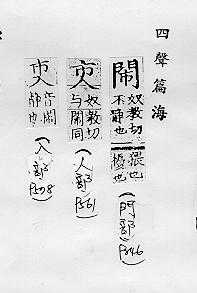 四聲篇海
閙 奴教切
不靜也
猥也
擾也
(門部)
奴教切
与閙同
(人部) P561
音閙
靜也
(入部)